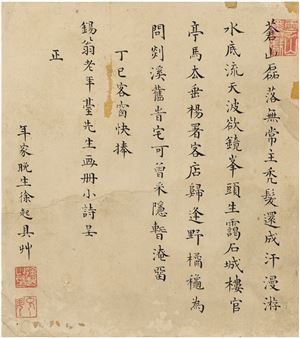 蒼山磊落無常主禿髮還成汗漫游
水底流天波欲鏡峯頭生靄石城樓官
亭馬垂楊署客店歸逢野橘穐為
問剡溪舊旹宅可曾采隱暫淹畱
丁巳客窗快捧
錫翁老年臺先生画册小詩呈
正
年家晚生徐起具艸